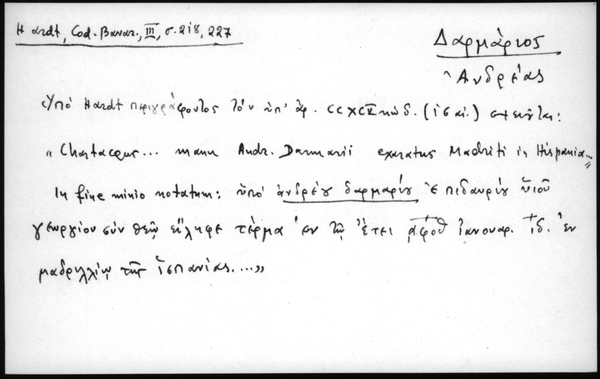 Hardt, Cod. Bavar., III, σ. 218, 227
Δαρμάριος
Ἀνδρέας
Ὑπό Hardt περιγράφοντος τόν ὑπ' ἀρ. κώδ. (ις αἰ.)
"Chartaceus... manu Andr. Darmarii exaratus Madriti in Hispania...
In fine minio notatum: ὑπό ἀνδρέου δαρμαρίου ἐπιδαυρίου υἱοῦ
γεωργίου σύν θεῷ εἴληφε τέρμα ἐν τῷ ἔτει αφοθ Ἰανουαρ. ιδ. ἐν
μαδριλλίῳ τῆς ἱσπανίας...."